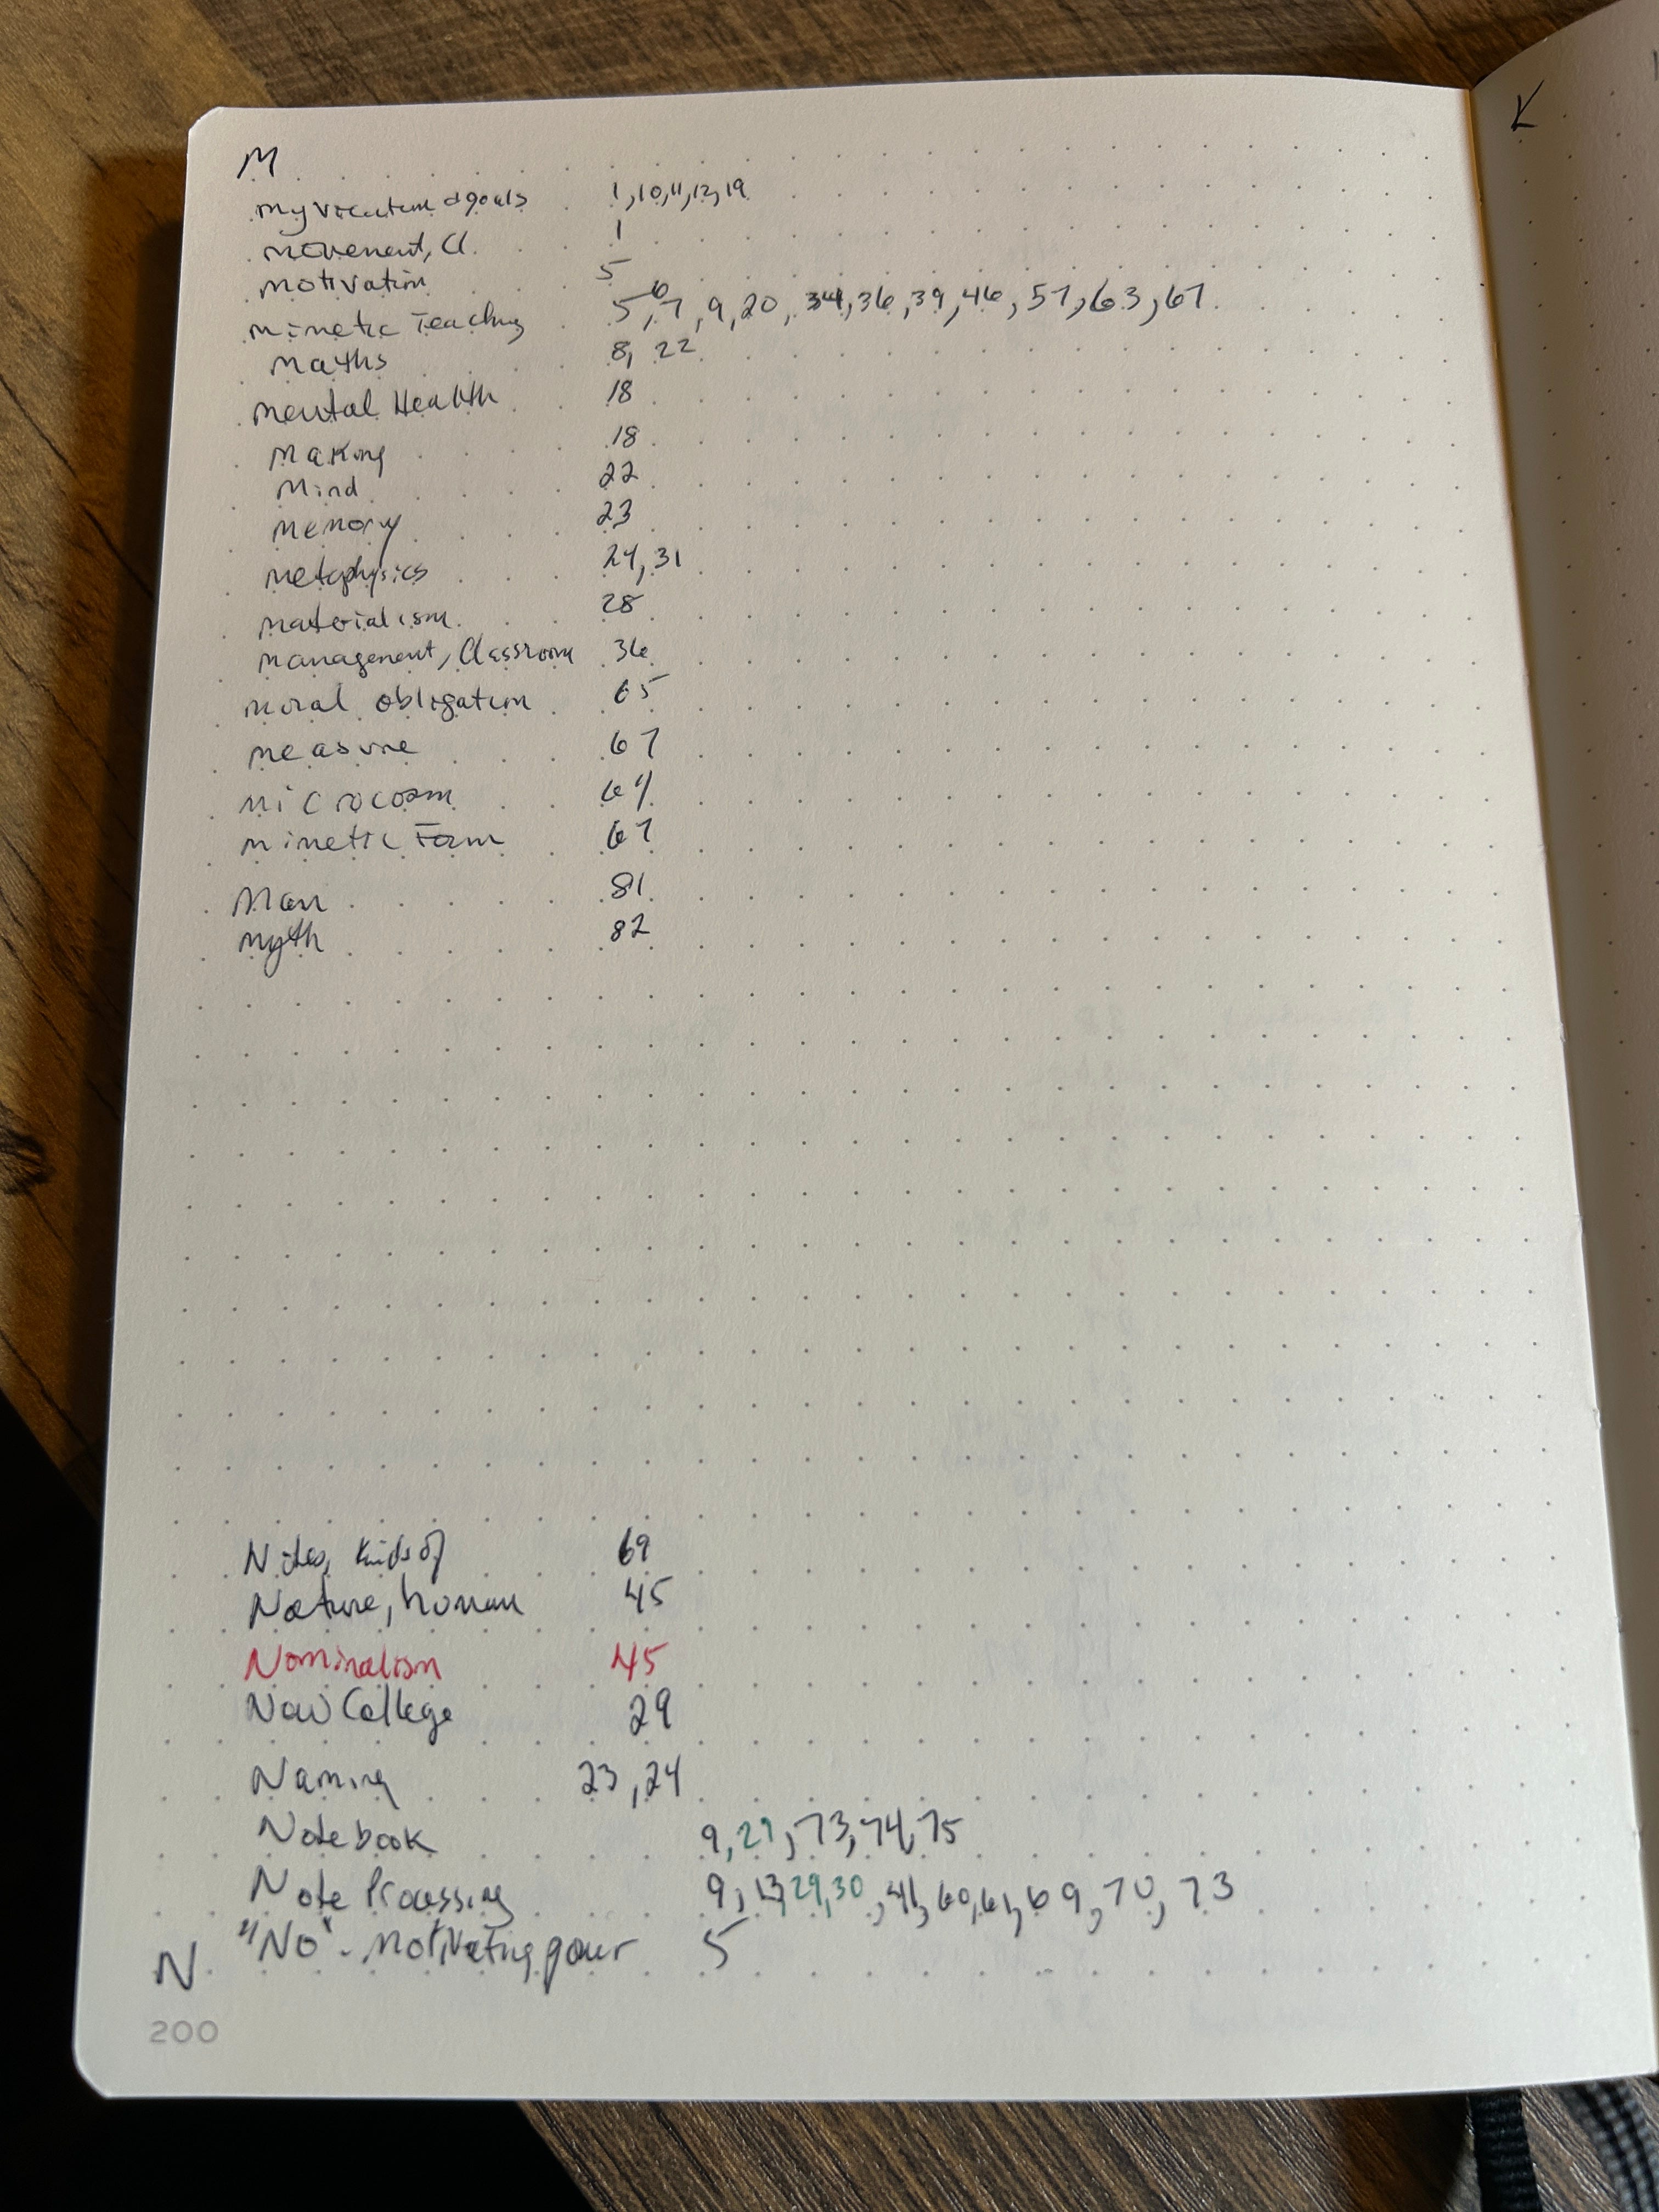 M
K
my vocation & goals 1, 10, 11, 12, 19
movement, Cl. 1
motivation 5
mimetic Teaching 5, 6, 7, 9, 20, 34, 36, 39, 46, 57, 63, 67
maths 8, 22
mental Health 18
Making 18
Mind 22
memory 23
metaphysics 24, 31
materialism 28
management, Classroom 36
moral obligation 65
measure 67
microcosm 64
mimetic Form 67
Man 81
myth 82
Notes, kinds of 69
Nature, human 45
Nominalism 45
New College 29
Naming 23, 24
Notebook 9, 29, 73, 74, 75
Note Processing 9, 13, 29, 30, 41, 60, 61, 69, 70, 73
"No" - motivating power 5
N
200